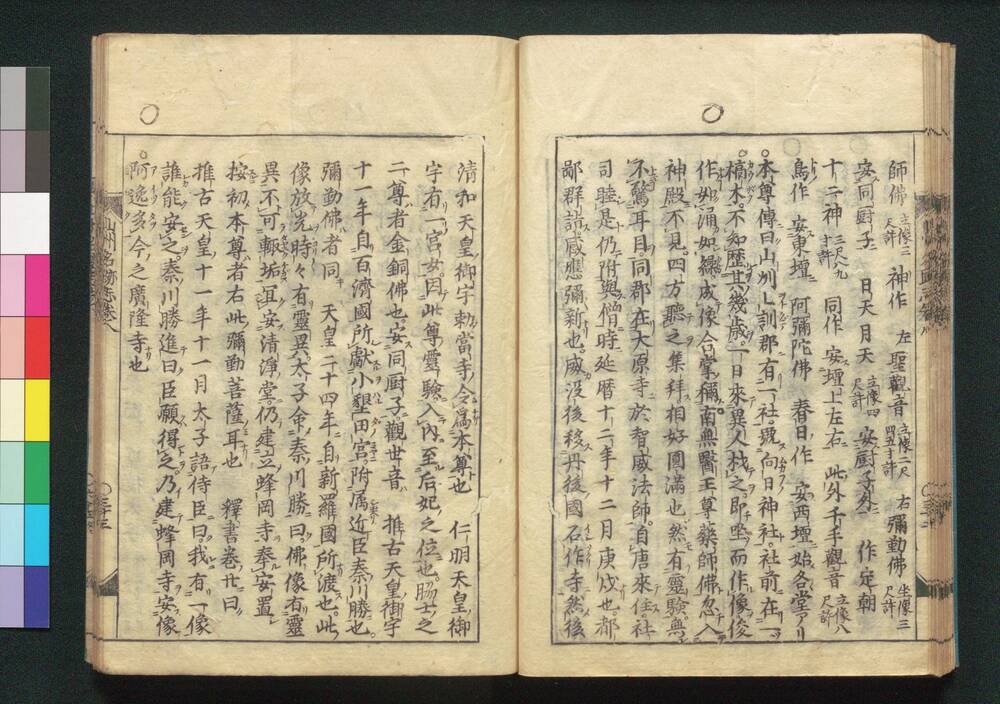 師佛 立像二尺許 神作 左 聖觀音 立像二尺四五寸許 右 彌勒佛 坐像三尺許
安同厨子 日天月天 立像四尺許 安厨子外 作定朝
十二神 三尺九寸許 同作 安壇上左右 此外千手觀音 立像八尺許
鳥作 安東壇 阿彌陀佛 春日作 安西壇始各堂アリ
○本尊傳曰山州乙訓郡有一社號向日神社社前在一
槁木不知歷其幾歳一日來異人杖之即坐而作像俊
作如涌如緣成像合掌稱南無醫王尊藥師佛忽入
神殿不見四方聽之集拜相好圓滿也然有靈驗無
不驚耳目同郡在大原寺於智威法師自唐來住社
司睦是仍附與僧時延曆十二年十二月庚戌也都
鄙群詣感應彌新也威没後移丹後國石作寺然後
清和天皇御宇勅當寺令爲本尊也 仁明天皇御
宇有一宮女因此尊靈驗入內至后妃之位也脇士之
二尊者金銅佛也安同厨子觀世音 推古天皇御宇
十一年自百濟國所獻小墾田宮附属近臣秦川勝也
彌勤佛者同 天皇二十四年自新羅國所渡也此
像放光時々有靈異太子命秦川勝曰佛像有靈
異不可輙垢冝安清淨堂仍建立蜂岡寺奉安置
按初本尊者右此彌勤菩薩耳也 釋書卷廿曰
推古天皇十一年十一月太子語侍臣曰我有一像
誰能安之秦川勝進曰臣願得之乃建蜂岡寺安像
○阿逸多今之廣隆寺也